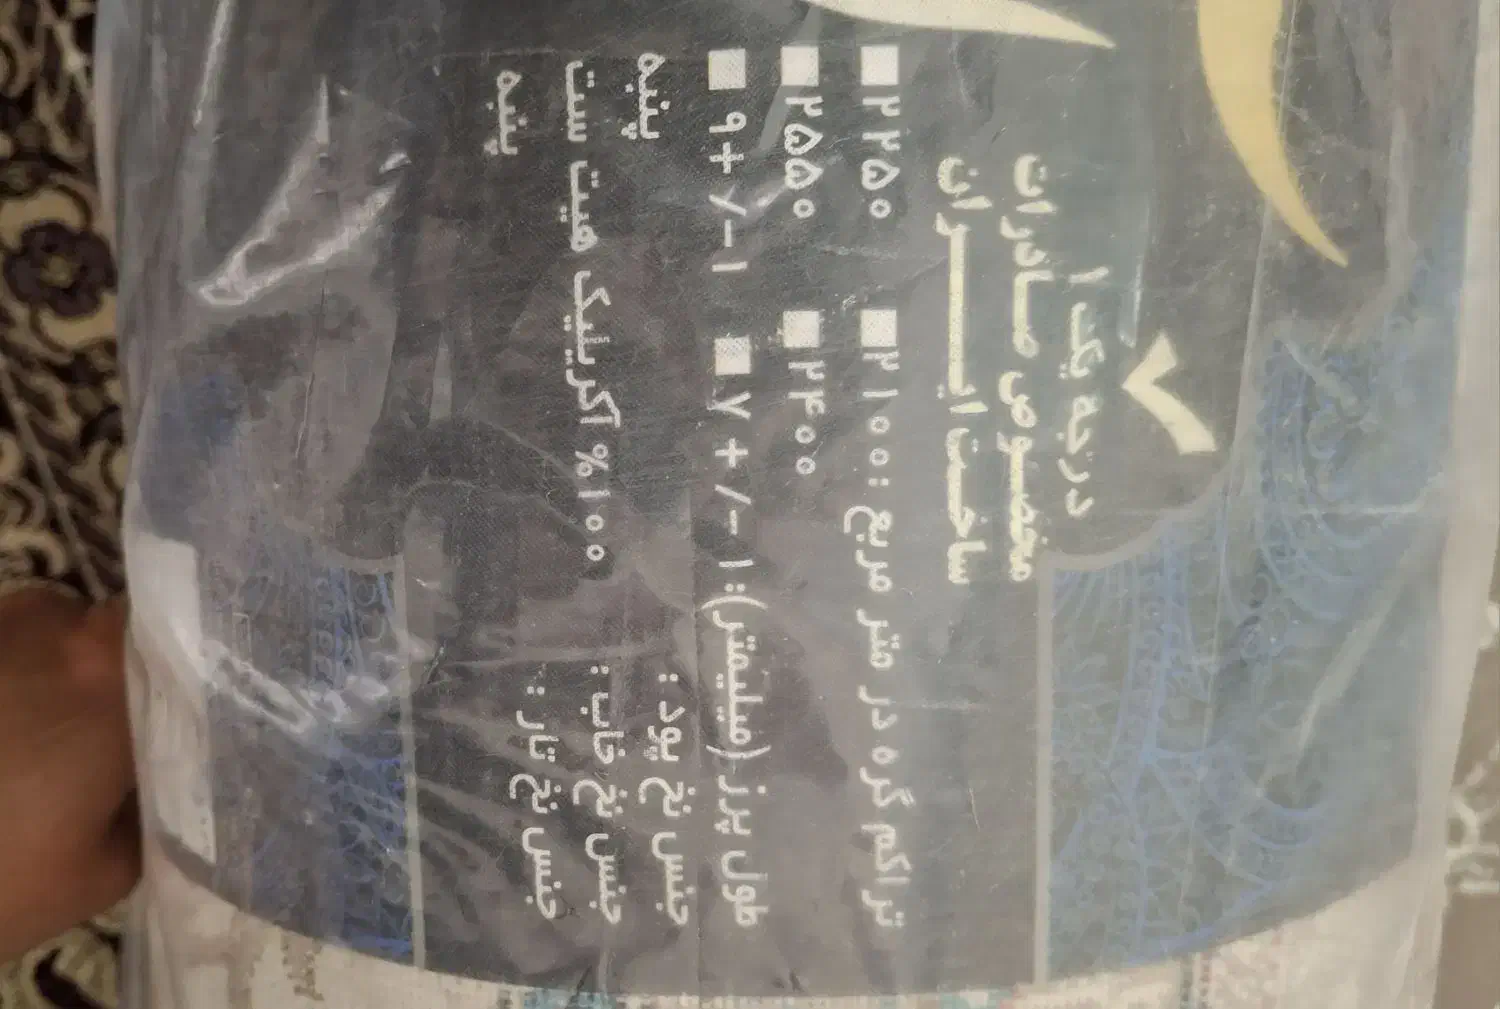 درجه یک ۱
مخصوص صادرات
ساخت ایران
تراکم گره در متر مربع : ۲۱۰۰ ■ ۲۲۵۰ ■
۲۴۰۰ ■ ۲۵۵۰ ■
طول پرز (میلیمتر): ۱ -/ + ۷ ■ ۱ -/ + ۹ ■
جنس نخ پود : پنبه
جنس نخ خاب : ۱۰۰% اکریلیک هیت ست
جنس نخ تار : پنبه